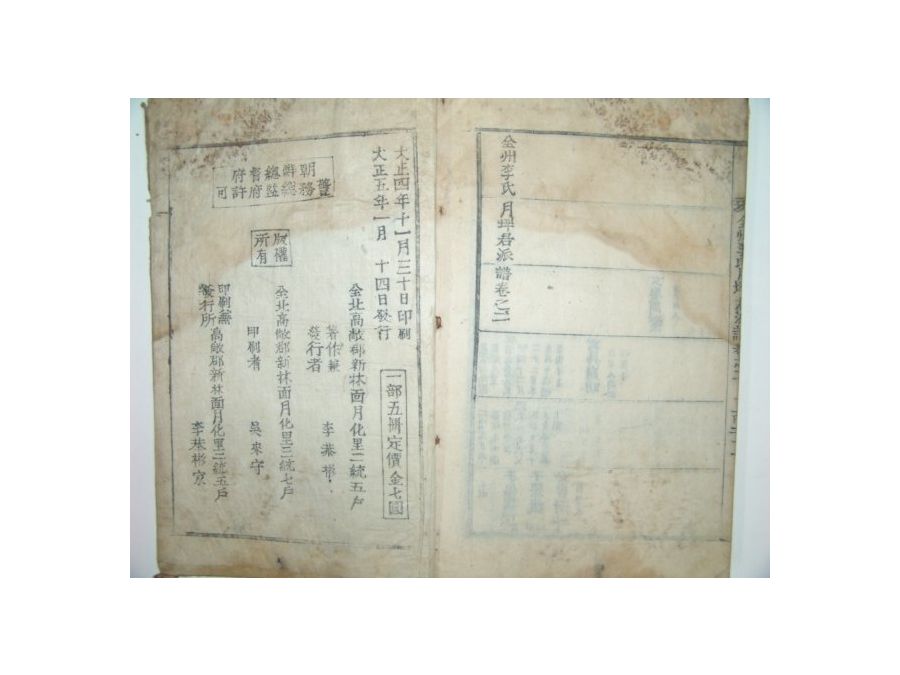 全州李氏月坪君派譜卷之二
大正四年十一月三十日印刷
大正五年一月 十四日發行
一部五冊定價金七圓
全北高敞郡新林面月化里二統五戶
著作兼
發行者 李恭彬
全北高敞郡新林面月化里三統七戶
印刷者 吳來守
印刷兼
發行所 高敞郡新林面月化里二統五戶
李恭彬家
版權
所有
朝鮮總督府
警務總監府許可